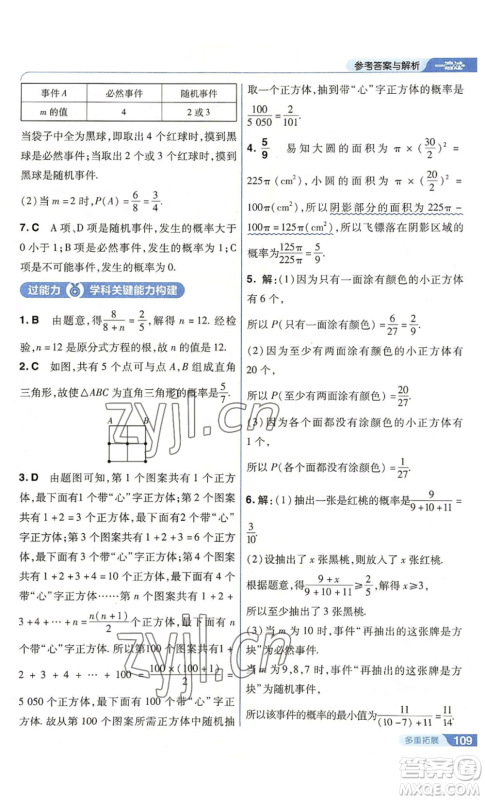 参考答案与解析
事件A 必然事件 随机事件
m的值 4 2或3
当袋子中全为黑球,即取出 4 个红球时,摸到黑
球是必然事件;当取出 2 个或 3 个红球时,摸到
黑球是随机事件.
(2)当 m=2时,P(A)=6/8=3/4.
7. C A 项、D 项是随机事件,发生的概率大于
0 小于 1;B 项是必然事件,发生的概率为 1;C
项是不可能事件,发生的概率为 0.
过能力 学科关键能力构建
1. B 由题意,得8/(8+n)=2/5,解得 n=12. 经检
验,n=12 是原分式方程的根,故 n 的值为 12.
2. C 如图,共有 5 个点可与点 A,B 构成直角
三角形,故使△ABC 为直角三角形的概率是5/7.
3. D 由题图可知,第 1 个图案共有 1 个正方
体,最下面有1 个带“心”字正方体;第 2 个图案
共有 1+2=3 个正方体,最下面有 2 个带“心”
字正方体;第 3 个图案共有 1+2+3=6 个正方
体,最下面有3 个带“心”字正方体;第 4 个图案
共有 1+2+3+4=10 个正方体,最下面有 4 个
带“心”字正方体……第 n 个图案共有 1+2+
3+4+…+n=n(n+1)/2个正方体,最下面有 n 个
带“心”字正方体;……则第 100 个图案共有 1+
2+3+4+…+100=100×(100+1)/2=
5 050 个正方体,最下面有 100 个带“心”字正方
体. 故从第 100 个图案所需正方体中随机抽
取一个正方体,抽到带“心”字正方体的概率是
100/5 050=2/101.
4. 5/9 易知大圆的面积为 π×(30/2)²=
225π(cm²),小圆的面积为 π×(20/2)²=
100π(cm²),所以阴影部分的面积为 225π-
100π=125π(cm²),所以飞镖落在阴影区域的
概率为125π/225π=5/9.
5. 解:(1)因为只有一面涂有颜色的小正方体
有 6 个,
所以 P(只有一面涂有颜色)=6/27=2/9.
(2)因为至少有两面涂有颜色的小正方体有
20 个,
所以 P(至少有两面涂有颜色)=20/27.
(3)因为各个面都没有涂颜色的小正方体有
1 个,
所以 P(各个面都没有涂颜色)=1/27.
6. 解:(1)抽出一张是红桃的概率是9/(9+10+11)=
3/10.
(2)设抽出了 x 张黑桃,则放入 x 张红桃.
根据题意,得(9+x)/(9+10+11)≥2/5,解得 x≥3.
答:至少抽出了 3 张黑桃.
(3)当 m 为 10 时,事件“再抽出的这张牌是方
块”为必然事件.
当 m 为 9,8,7 时,事件“再抽出的这张牌是方
块”为随机事件,
所以该事件的概率的最小值为11/((10-7)+11)=11/14.
zyjl.cn
zyjl.cn
多重拓展 109